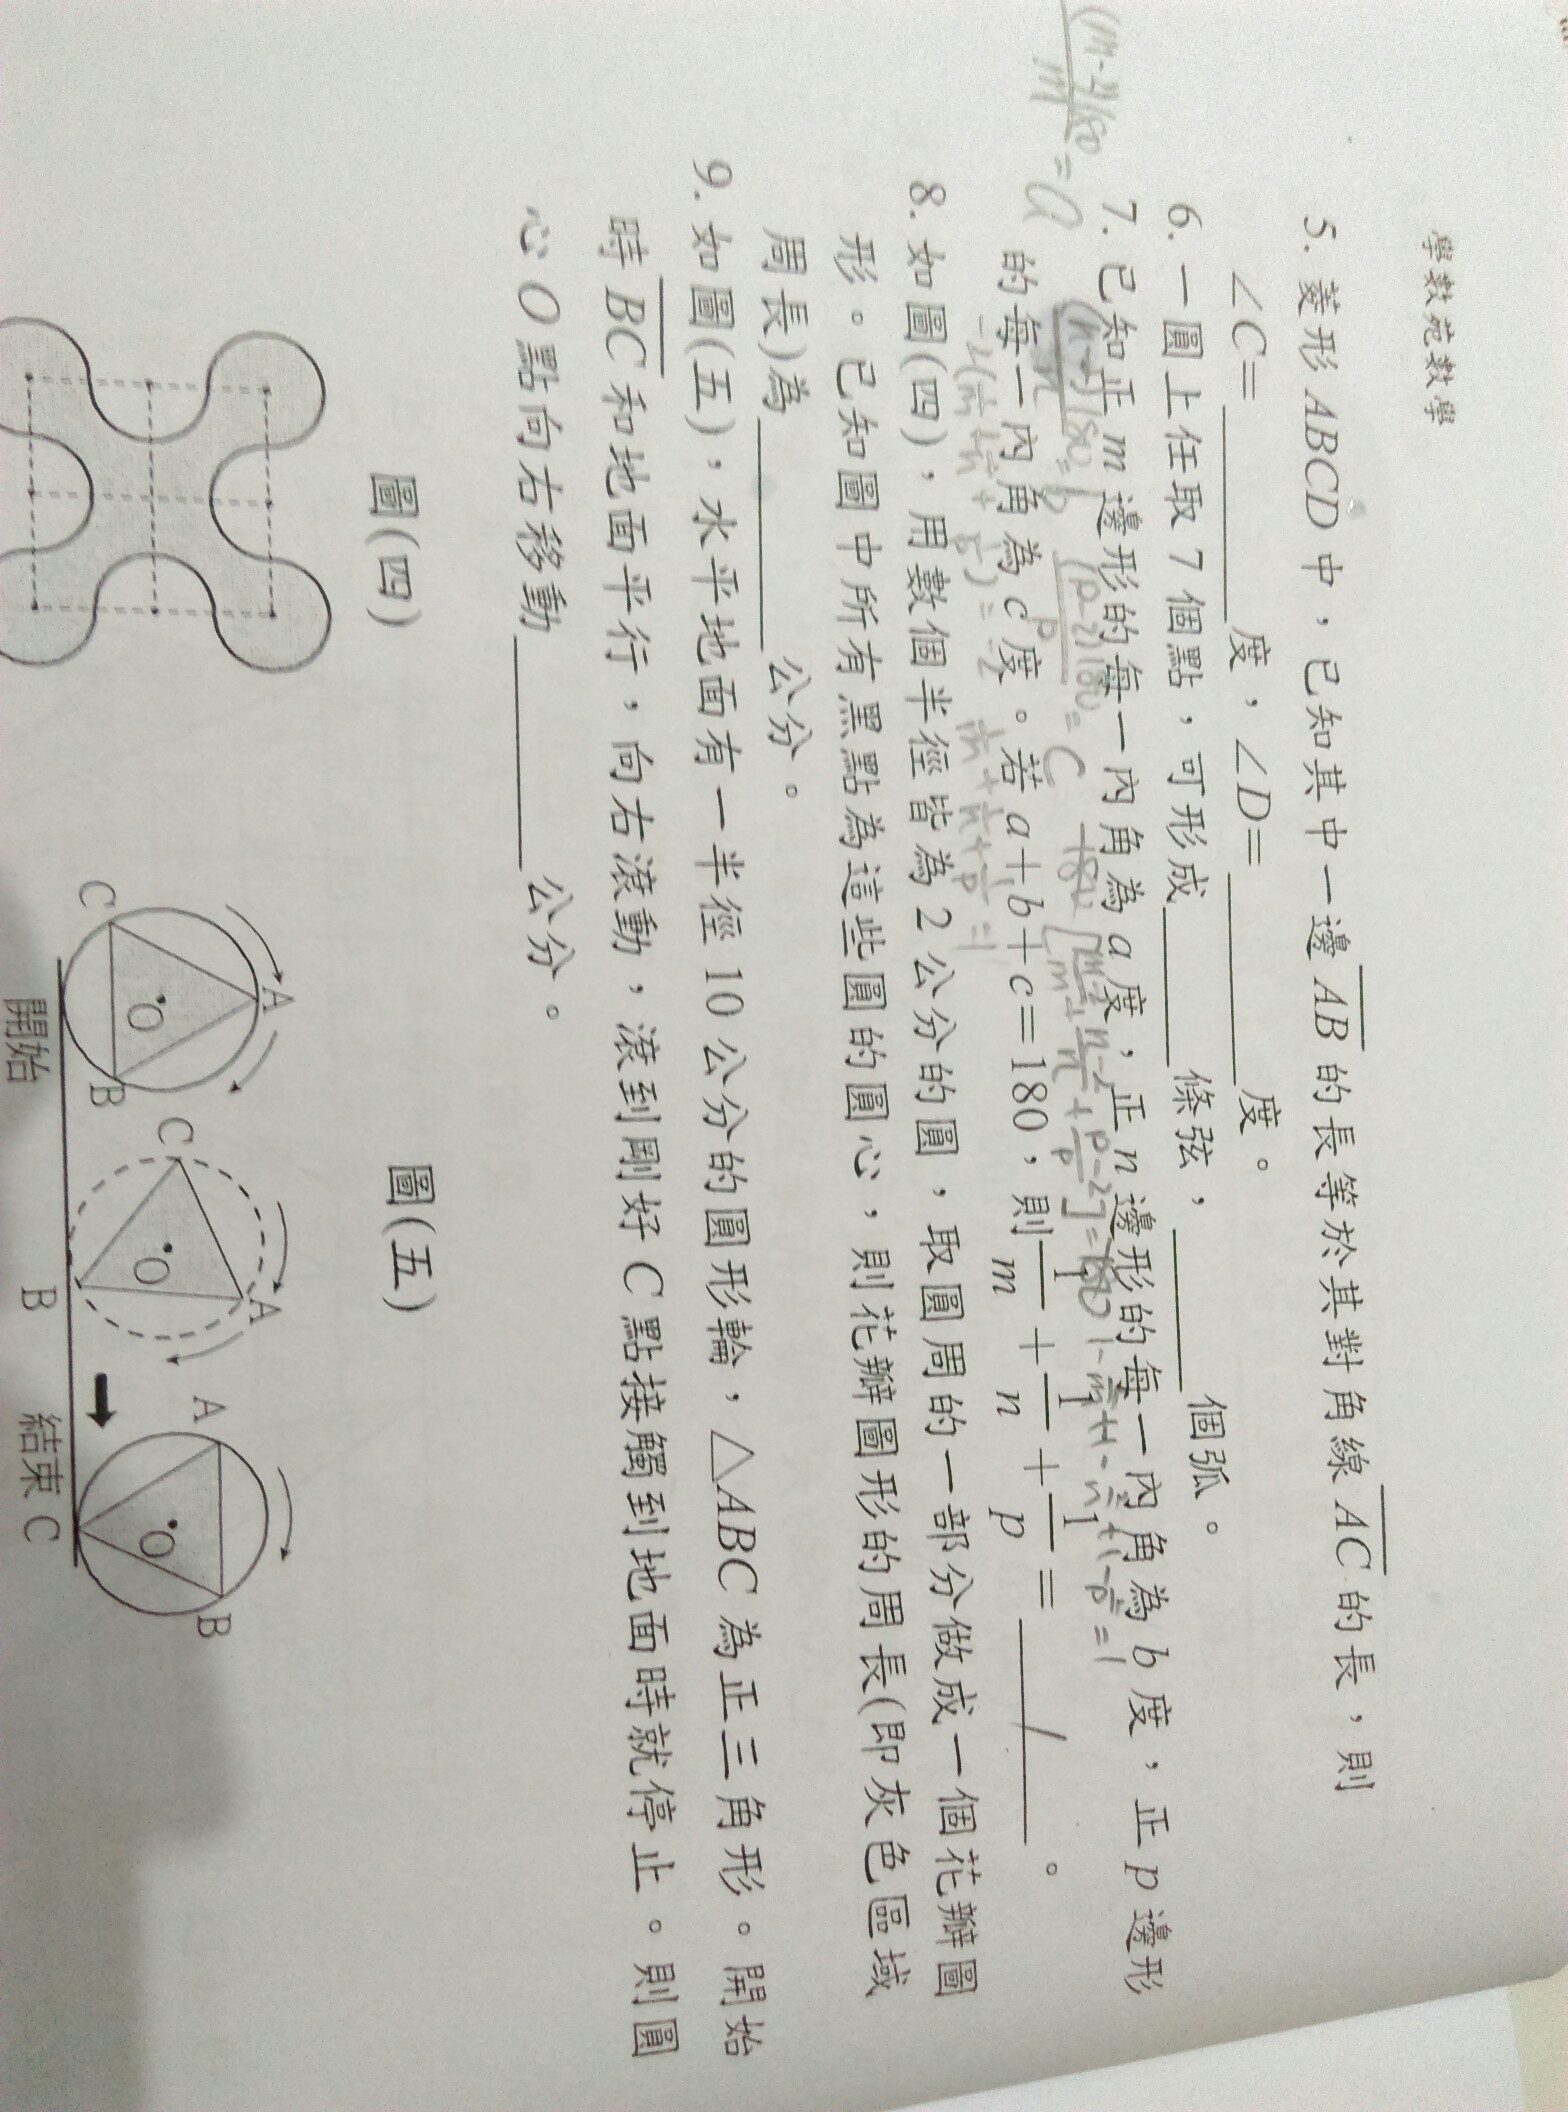 學數苑數學
5. 菱形ABCD中，已知其中一邊AB的長等於其對角線AC的長，則
∠C=＿＿＿度，∠D=＿＿＿度。
6. 一圓上任取7個點，可形成＿＿＿條弦，＿＿＿個弧。
7. 已知正m邊形的每一內角為a度，正n邊形的每一內角為b度，正p邊形
(m-2)180/m=a
(n-2)180/n=b
(p-2)180/p=c
的每一內角為c度。若a+b+c=180，則1/m+1/n+1/p=＿＿＿。
8. 如圖(四)，用數個半徑皆為2公分的圓，取圓周的一部分做成一個花瓣圖
形。已知圖中所有黑點為這些圓的圓心，則花瓣圖形的周長(即灰色區域
周長)為＿＿＿公分。
9. 如圖(五)，水平地面有一半徑10公分的圓形輪，△ABC為正三角形。開始
時BC和地面平行，向右滾動，滾到剛好C點接觸到地面時就停止。則圓
心O點向右移動＿＿＿公分。
圖(四)
圖(五)
A
O
C
B
開始
C
A
O
B
A
B
O
結束 C